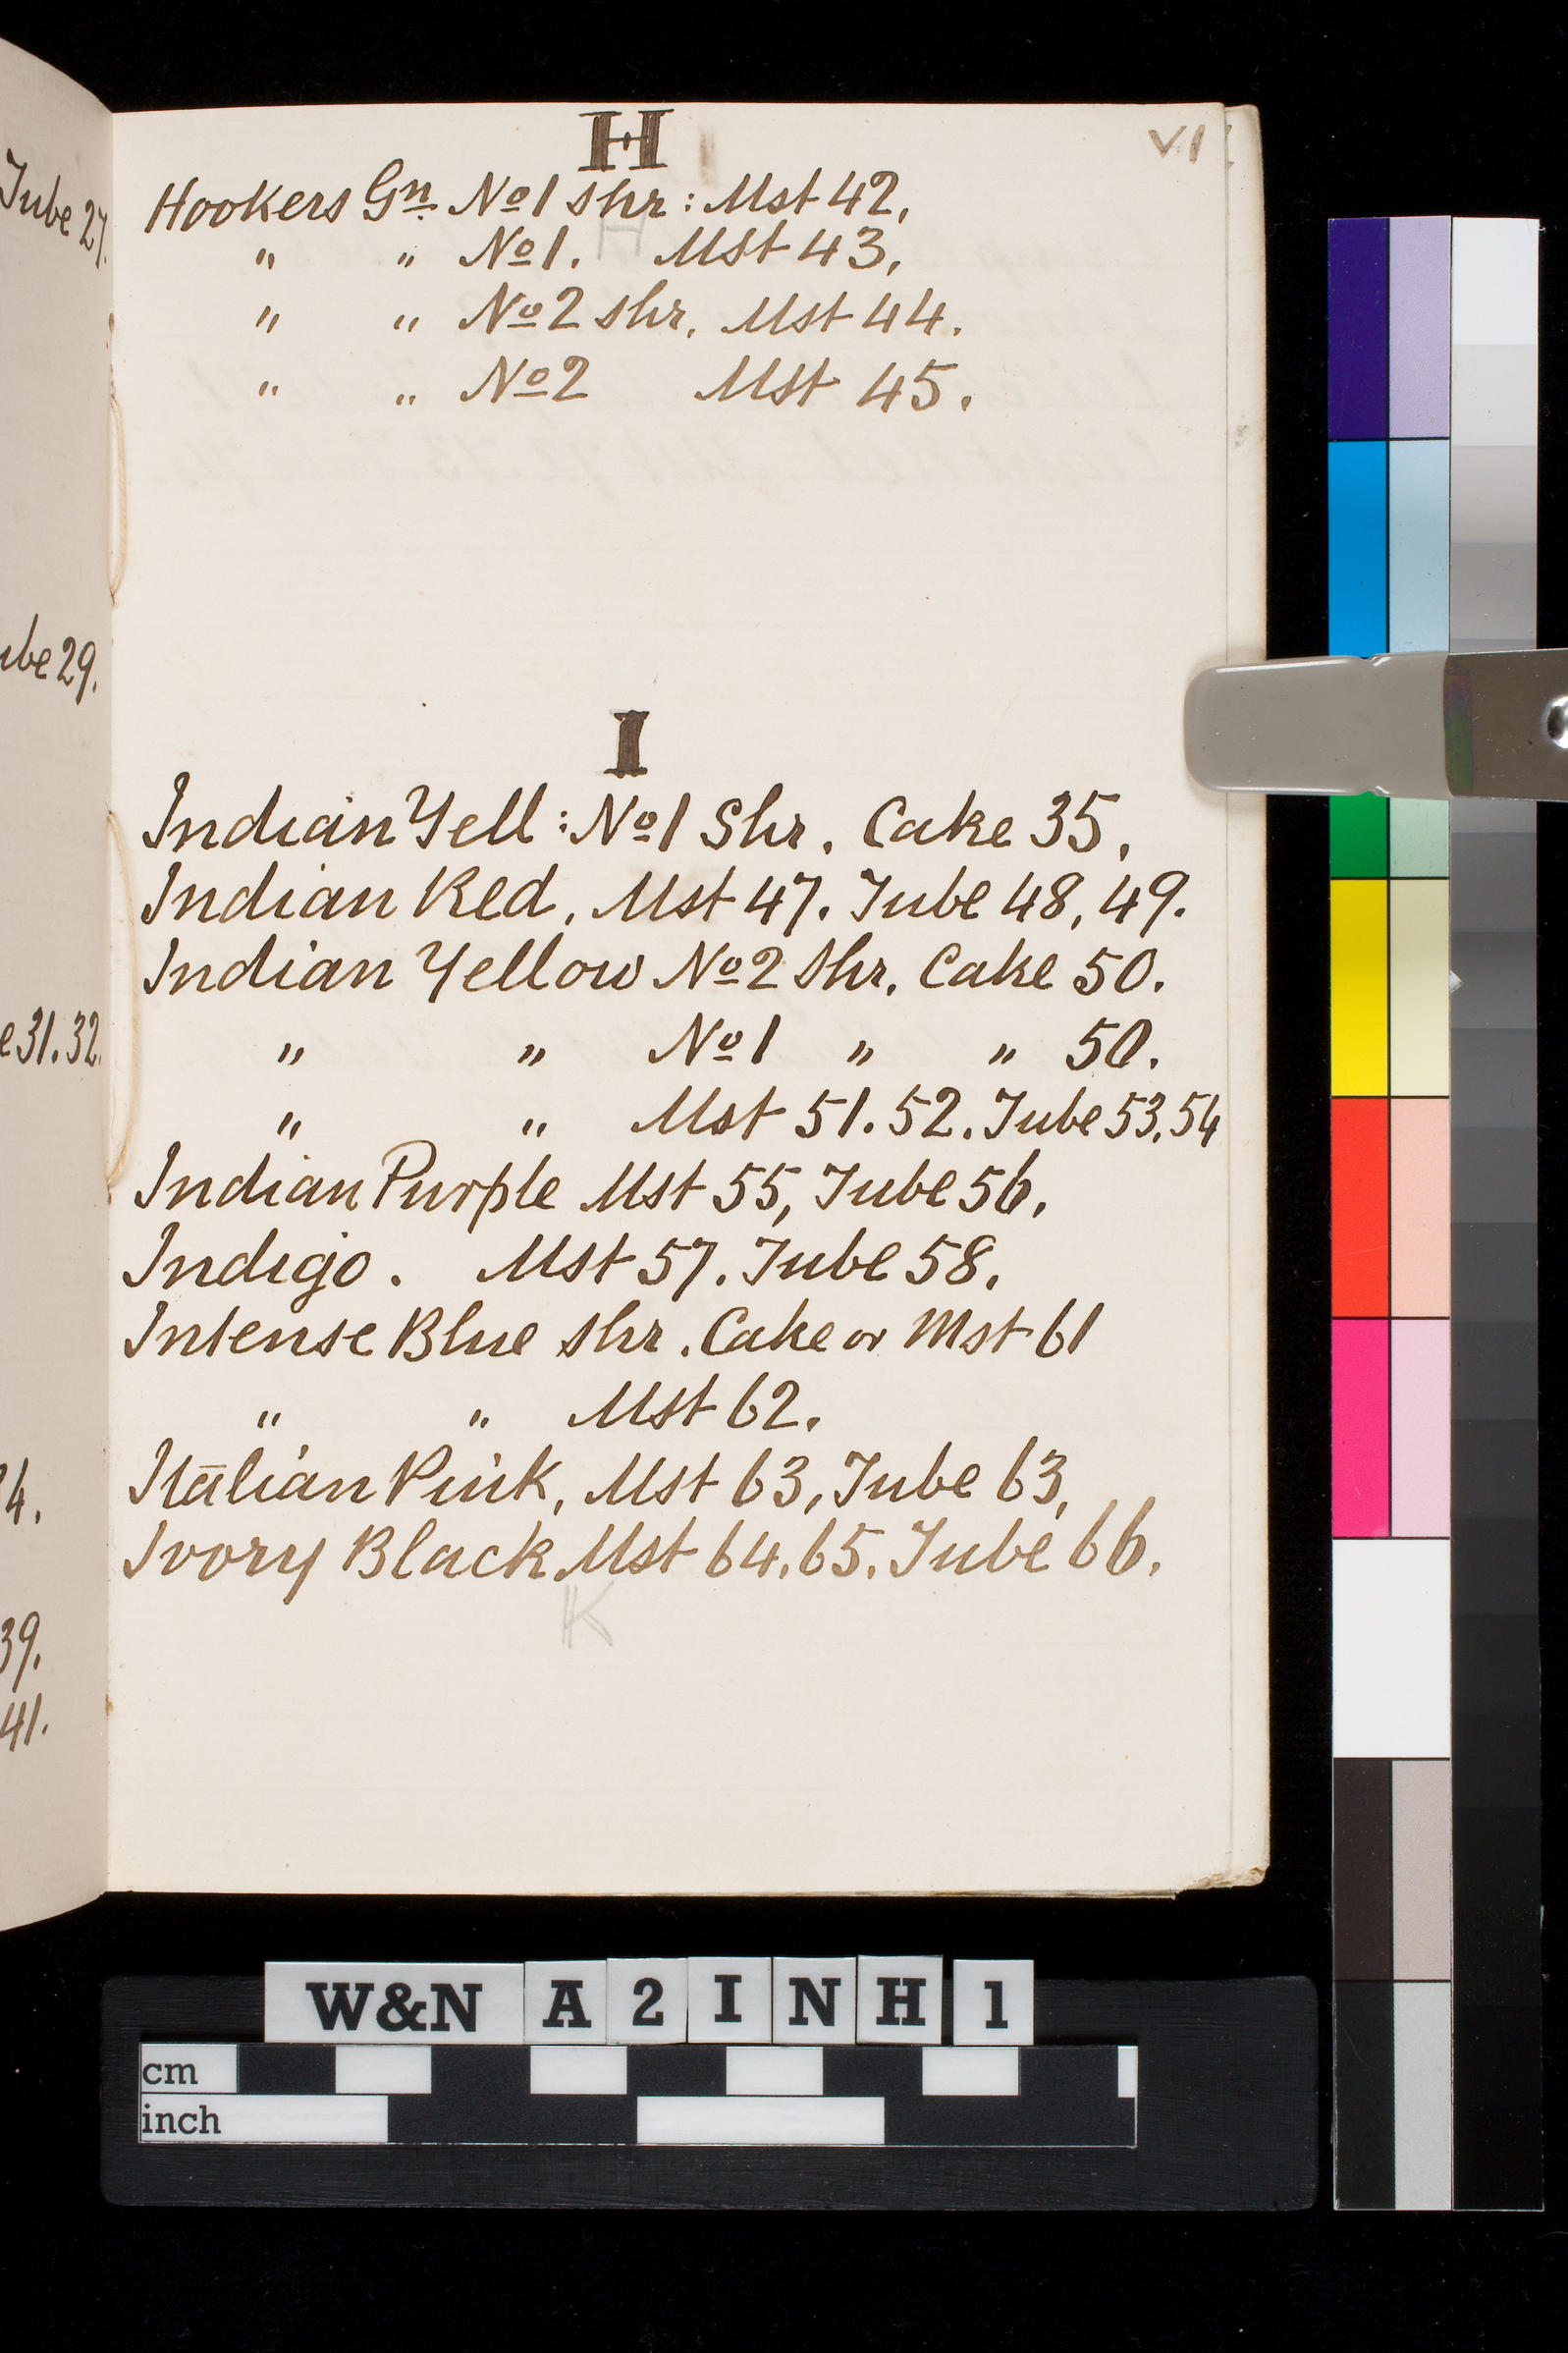 H
VI
Hookers Gn No1 shr: Mst 42.
" " No1. Mst 43.
" " No2 shr. Mst 44.
" " No2 Mst 45.
I
Indian Yell: No1 Shr. Cake 35.
Indian Red. Mst 47. Tube 48, 49.
Indian Yellow No2 Shr. Cake 50.
" " No1 " " 50.
" " Mst 51. 52. Tube 53. 54
Indian Purple Mst 55, Tube 56.
Indigo. Mst 57. Tube 58.
Intense Blue shr. Cake or Mst 61
" " Mst 62.
Italian Pink, Mst 63, Tube 63.
Ivory Black Mst 64. 65. Tube 66.
K
Tube 27.
ube 29.
e 31. 32.
4.
39.
41.
W&N A 2 I N H 1
cm
inch